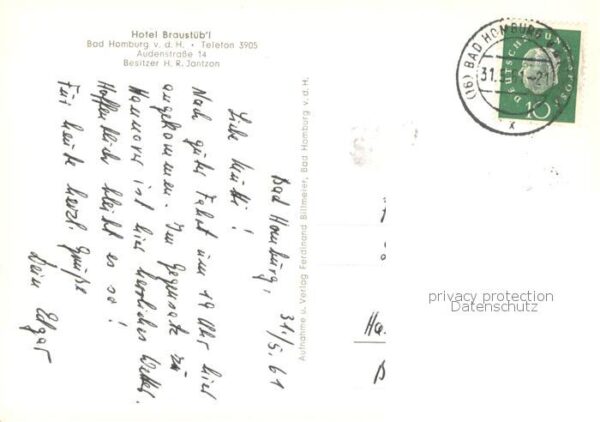 Hotel Braustüb'l
Bad Homburg v. d. H. • Telefon 3905
Audenstraße 14
Besitzer H. R. Jantzon
Bad Homburg,
31./5. 61
Liebe Mutti!
Nach guter Fahrt um 19 Uhr hier
angekommen. Im Gegensatz zu
Hannover ist hier herrliches Wetter.
Hoffentlich bleibt es so!
Für heute herzl. Grüße
Dein Edgar
Aufnahme u. Verlag Ferdinand Billmeier, Bad Homburg v. d. H.
(16) BAD HOMBURG
31. -21
DEUTSCHE BUNDESPOST
10
Ha
privacy protection
Datenschutz